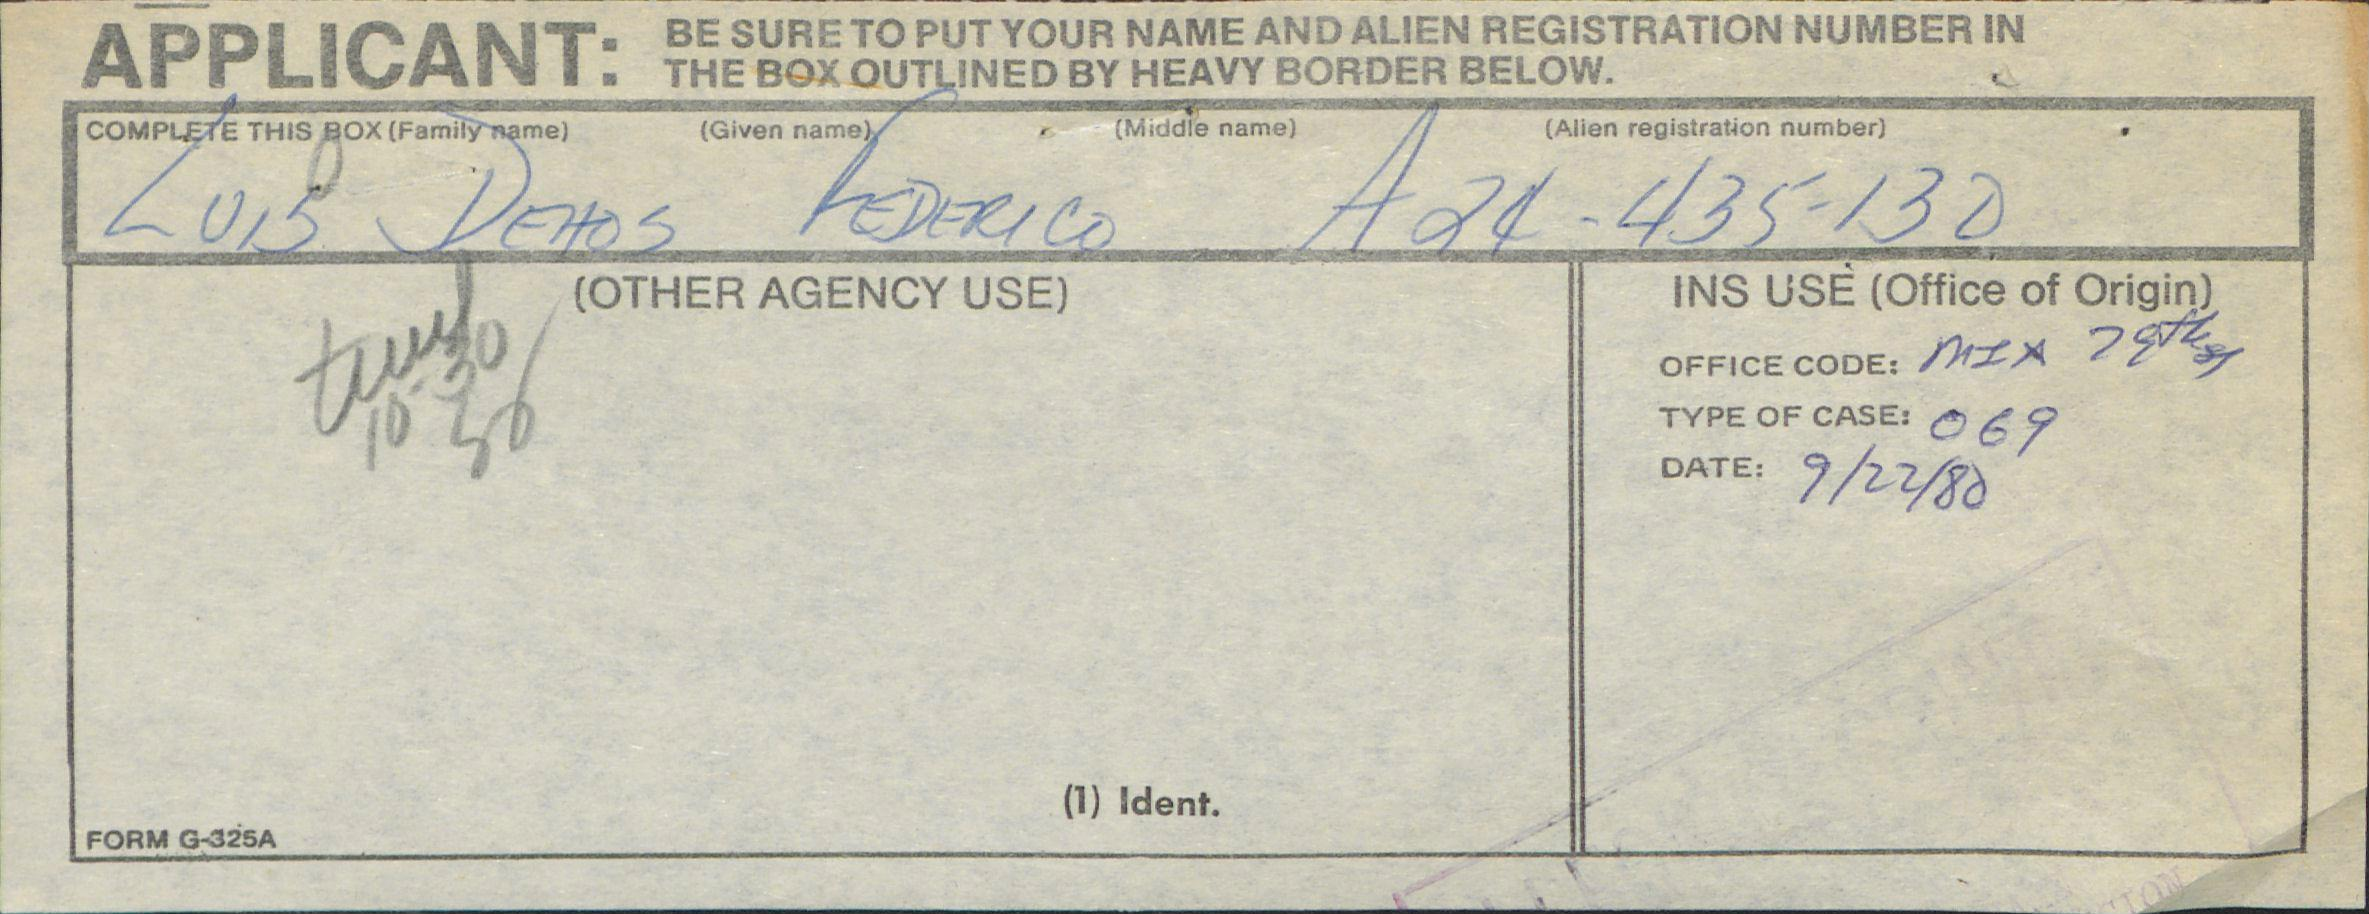 APPLICANT: BE SURE TO PUT YOUR NAME AND ALIEN REGISTRATION NUMBER IN
THE BOX OUTLINED BY HEAVY BORDER BELOW.
COMPLETE THIS BOX (Family name) (Given name) (Middle name) (Alien registration number)
LUIS DEHOS FEDERICO A24-435-130
(OTHER AGENCY USE)
10-30
INS USE (Office of Origin)
OFFICE CODE: MIA 79th St
TYPE OF CASE: 069
DATE: 9/22/80
(1) Ident.
FORM G-325A